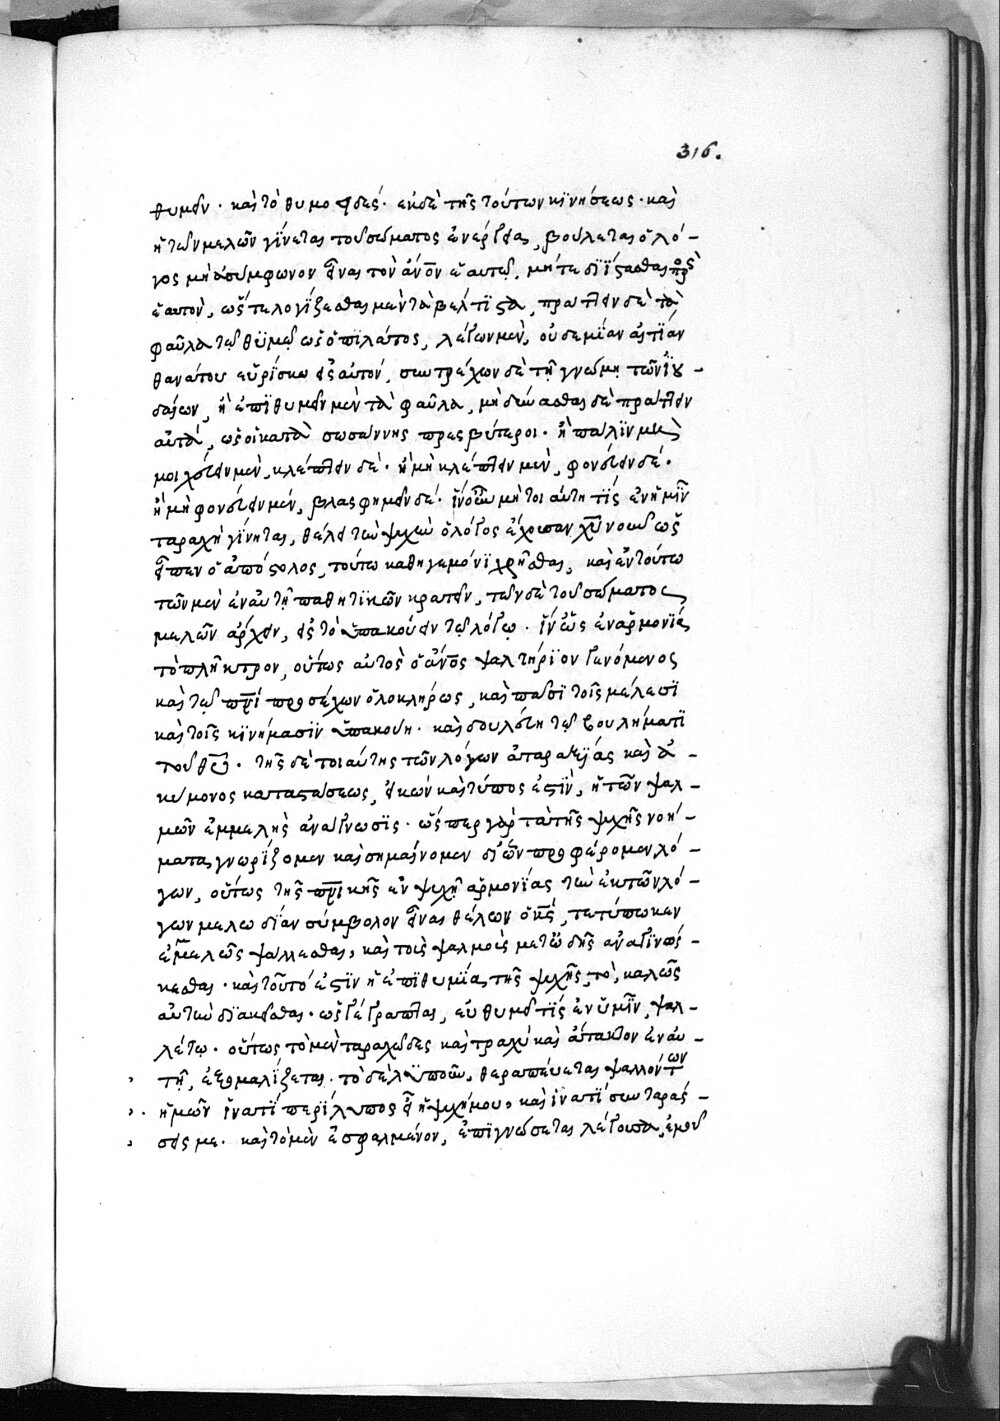 316.
θυμεῖν · καὶ τὸ θυμοειδές · ἐκ δὲ τῆς τούτων κινήσεως · καὶ
ἡ τῶν μελῶν γίνεται τοῦ σώματος ἐνέργεια, βούλεται ὁ λό-
γος μὴ ἀσύμφωνον εἶναι τὸν ἄνον ἑαυτῷ. μήτε διΐστασθαι πρὸς
ἑαυτὸν, ὥστε λογίζεσθαι μὲν τὰ βέλτιστα, πράττειν δὲ τὰ
φαῦλα τῷ θυμῷ ὡς ὁ πιλάτος, λέγων μὲν, οὐδεμίαν αἰτίαν
θανάτου εὑρίσκω εἰς αὐτόν, συντρέχων δὲ τῇ γνώμῃ τῶν ἰου-
δαίων, ἢ ἐπιθυμεῖν μὲν τὰ φαῦλα, μὴ δύνασθαι δὲ πράττειν
αὐτά, ὡς οἱ κατὰ σωσάννης πρεσβύτεροι · ἢ πάλιν μὴ
μοιχεύειν μὲν, κλέπτειν δέ · ἢ μὴ κλέπτειν μὲν, φονεύειν δέ ·
ἢ μὴ φονεύειν μέν, βλασφημεῖν δέ · ἵν οὖν μή τοι αὕτη τίς ἐν ἡμῖν
ταραχὴ γίνηται, θέλει τὴν ψυχὴν ὁ λόγος ἔχουσαν χῦ νοῦν ὡς
εἶπεν ὁ ἀπόστολος, τούτῳ καθηγεμόνι χρῆσθαι, καὶ ἐν τούτῳ
τῶν μὲν ἐν αὐτῇ παθητικῶν κρατεῖν, τῶν δὲ τοῦ σώματος
μελῶν ἄρχειν, εἰς τὸ ὑπακούειν τῷ λόγῳ · ἵν ὡς ἐν ἁρμονίᾳ
τὸ πλῆκτρον, οὕτως αὐτὸς ὁ ἄνος ψαλτήριον γενόμενος
καὶ τῷ πνι προσέχων ὁλοκλήρως, καὶ πᾶσι τοῖς μέλεσι
καὶ τοῖς κινήμασιν ὑπακούῃ · καὶ δουλεύῃ τῷ βουλήματι
τοῦ θυ · τῆς δὲ τοιαύτης τῶν λόγων ἀταραξίας καὶ ἀ-
κύμονος καταστάσεως, εἰκών καὶ τύπος ἐστὶν, ἡ τῶν ψαλ-
μῶν ἐμμελὴς ἀνάγνωσις · ὥσπερ γὰρ τὰ τῆς ψυχῆς νοή-
ματα γνωρίζομεν καὶ σημαίνομεν δι' ὧν προφέρομεν λό-
γων, οὕτως τῆς πνικῆς ἐν ψυχῇ ἁρμονίας τὴν ἐκ τῶν λό-
γων μελωδίαν σύμβολον εἶναι θέλων ὁ κς, τετύπωκεν
ἐμμελῶς ψάλλεσθαι, καὶ τοὺς ψαλμοὺς μετ' ᾠδῆς ἀναγινώς-
κεσθαι · καὶ τοῦτό ἐστιν ἡ ἐπιθυμία, τῆς ψυχῆς, τὸ, καλῶς
αὐτὴν διακεῖσθαι · ὡς γέγραπται, εὐθυμεῖ τὶς ἐν ὑμῖν, ψαλ-
λέτω · οὕτως τὸ μὲν ταραχῶδες καὶ τραχὺ καὶ ἄτακτον ἐν αὐ-
τῇ, ἐξομαλίζεται · τὸ δὲ λυποῦν, θεραπεύεται ψαλλόντων
ἡμῶν ἵνα τί περίλυπος εἶ ἡ ψυχή μου, καὶ ἵνα τί συνταράς-
σεις με · καὶ τὸ μὲν ἐσφαλμένον, ἐπιγνώσεται λέγουσα, ἐμοῦ